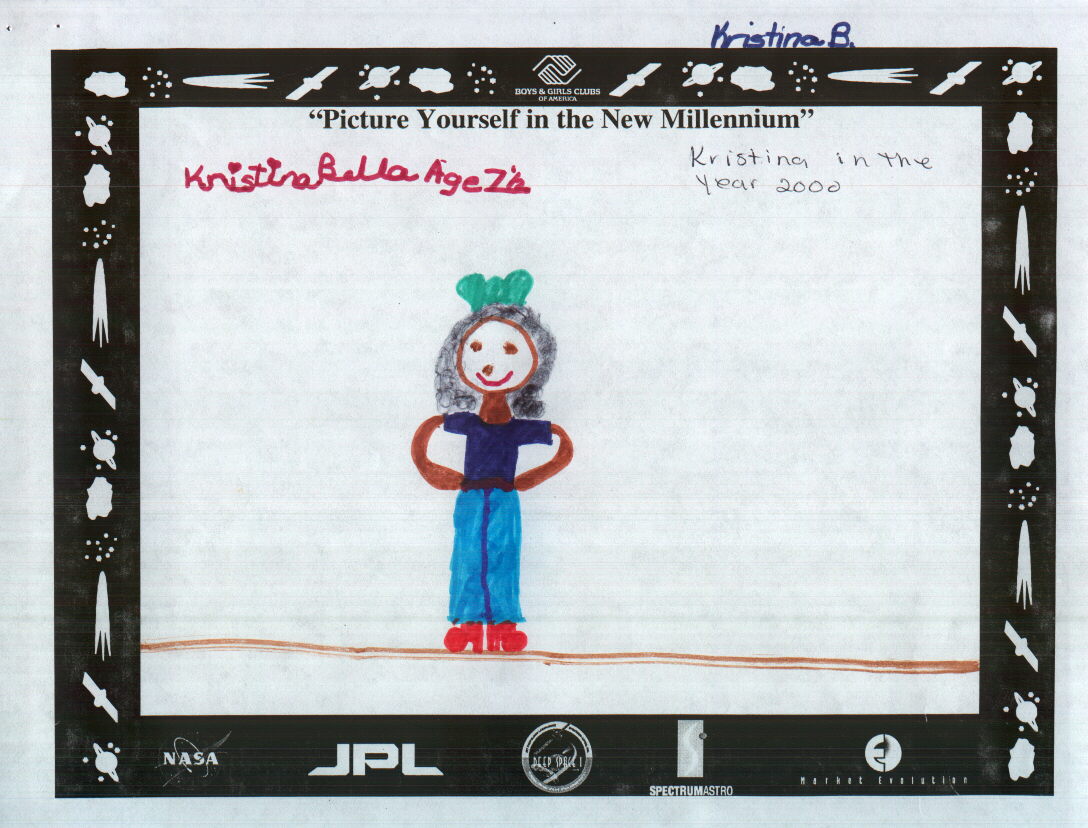 Kristina B.
BOYS & GIRLS CLUBS
OF AMERICA
“Picture Yourself in the New Millennium”
Kristina Bella Age 7½
Kristina in the
Year 2000
NASA
JPL
DEEP SPACE 1
SPECTRUMASTRO
Market Evolution